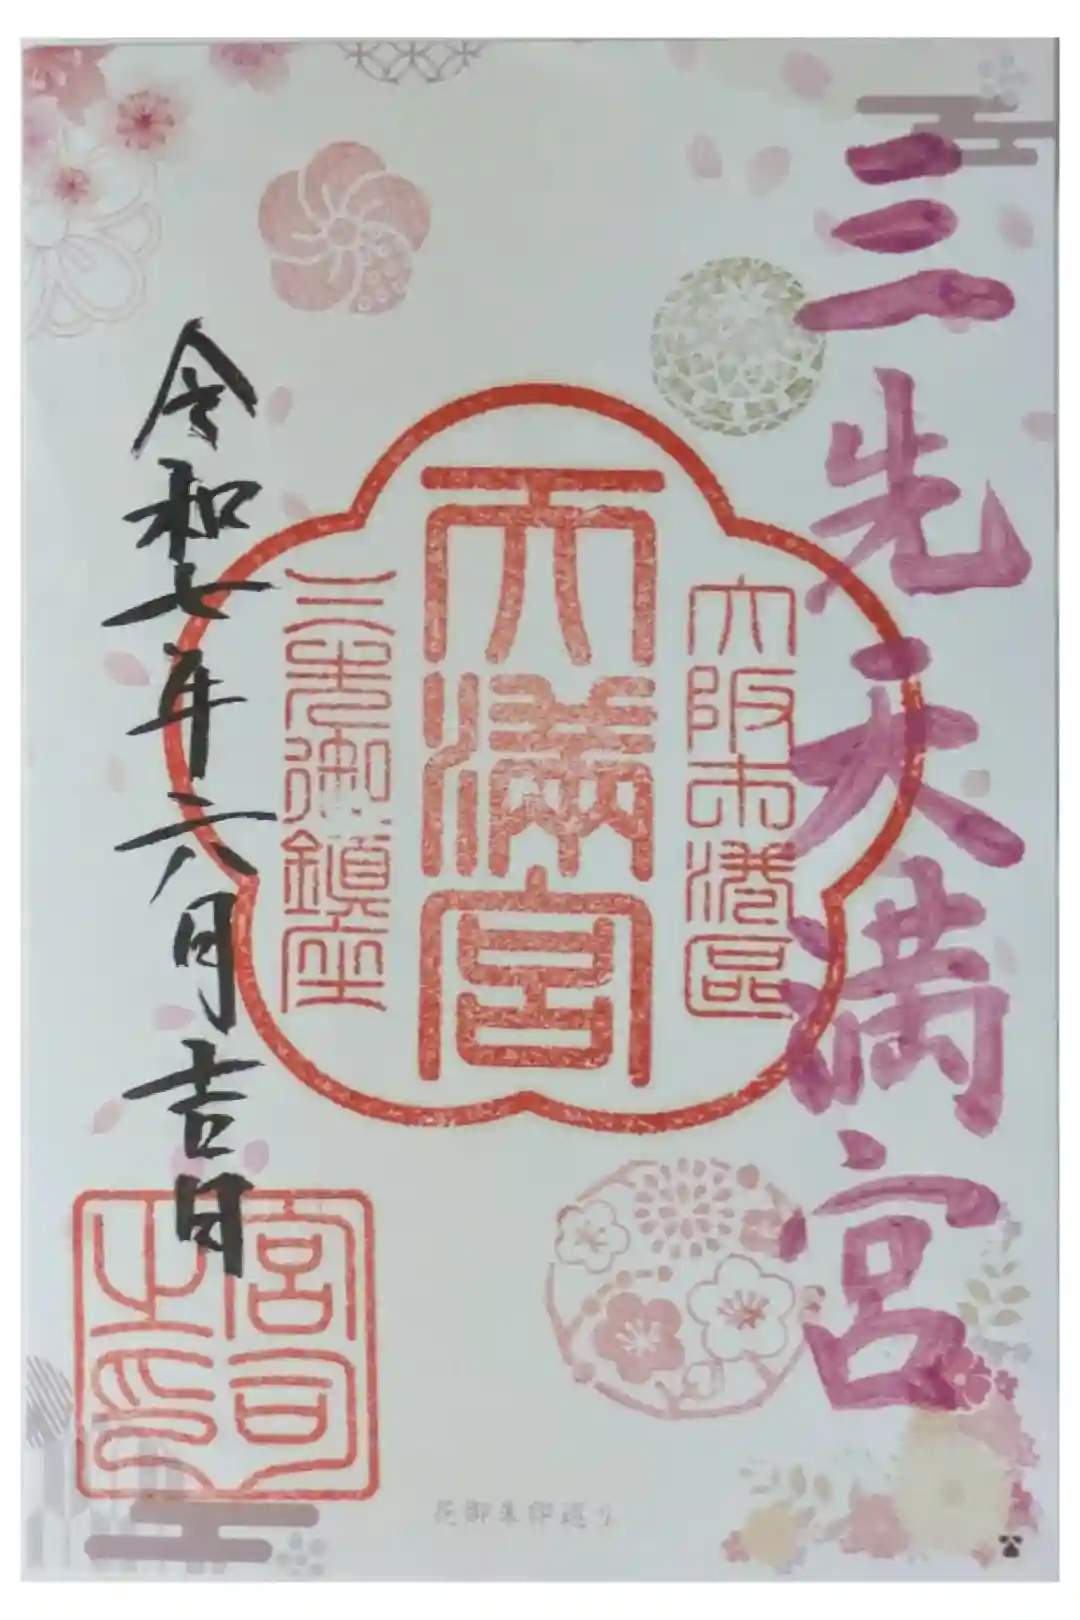 三先天満宮
大阪市港區
天満宮
三先御鎮座
令和七年六月吉日
宮司之印
花御朱印巡り